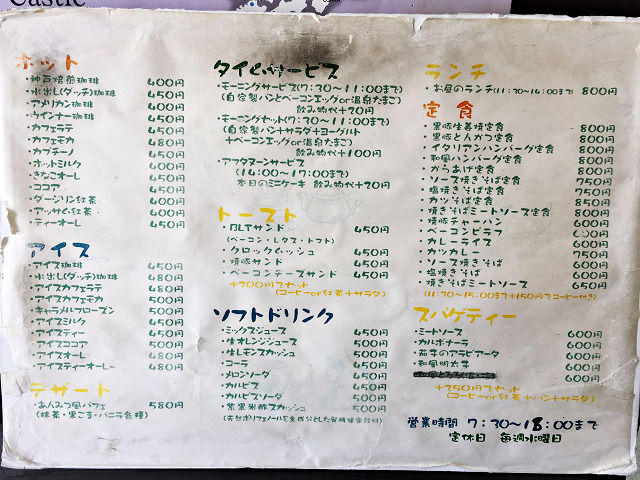 Castle
ホット
・神戸焙煎珈琲 400円
・水出し(ダッチ)珈琲 450円
・アメリカン珈琲 400円
・ウインナー珈琲 450円
・カフェラテ 450円
・カフェモカ 480円
・カプチーノ 450円
・ホットミルク 400円
・きなこオーレ 450円
・ココア 450円
・ダージリン紅茶 400円
・アッサム紅茶 400円
・ティーオーレ 450円
アイス
・アイス珈琲 450円
・水出し(ダッチ)珈琲 480円
・アイスカフェラテ 480円
・アイスカフェモカ 500円
・キャラメルフローズン 500円
・アイスミルク 450円
・アイスティー 450円
・アイスココア 500円
・アイスオーレ 480円
・アイスティーオーレ 480円
デザート
・あんみつ風パフェ 580円
(抹茶・黒ごま・バニラ各種)
タイムサービス
・モーニングサービス(7:30〜11:00まで)
(自家製パンとベーコンエッグor温泉たまご)
飲み物代+20円
・モーニングセット(7:30〜11:00まで)
(自家製パン+サラダ+ヨーグルト
+ベーコンエッグor温泉たまご)
飲み物代+100円
・アフタヌーンサービス
(14:00〜17:00まで)
本日のミニケーキ 飲み物代+70円
トースト
・BLTサンド 450円
(ベーコン・レタス・トマト)
・クロックムッシュ 450円
・焼豚サンド 450円
・ベーコンチーズサンド 450円
+200円でセット
(コーヒーor紅茶+サラダ)
ソフトドリンク
・ミックスジュース 450円
・生オレンジジュース 500円
・生レモンスカッシュ 500円
・コーラ 450円
・メロンソーダ 450円
・カルピス 450円
・カルピスソーダ 500円
・紫黒米酢スカッシュ 500円
(天然ポリフェノールを主成分とした発酵健康飲料)
ランチ
・お昼のランチ(11:30〜14:00まで) 800円
定食
・黒豚生姜焼定食 800円
・黒豚とんかつ定食 800円
・イタリアンハンバーグ定食 800円
・和風ハンバーグ定食 800円
・からあげ定食 800円
・ソース焼きそば定食 750円
・塩焼きそば定食 750円
・カツそば定食 850円
・焼きそばミートソース定食 800円
・焼豚チャーハン 600円
・ベーコンピラフ
・カレーライス 600円
・カツカレー 750円
・ソース焼きそば 600円
・塩焼きそば 600円
・焼きそばミートソース 650円
(11:30〜15:00まで+150円でコーヒー付き)
スパゲティー
・ミートソース 600円
・カルボナーラ 600円
・茄子のアラビアータ 600円
・和風明太子 600円
600円
+250円でセット
(コーヒーor紅茶+パン+サラダ)
営業時間 7:30〜18:00まで
定休日 毎週水曜日